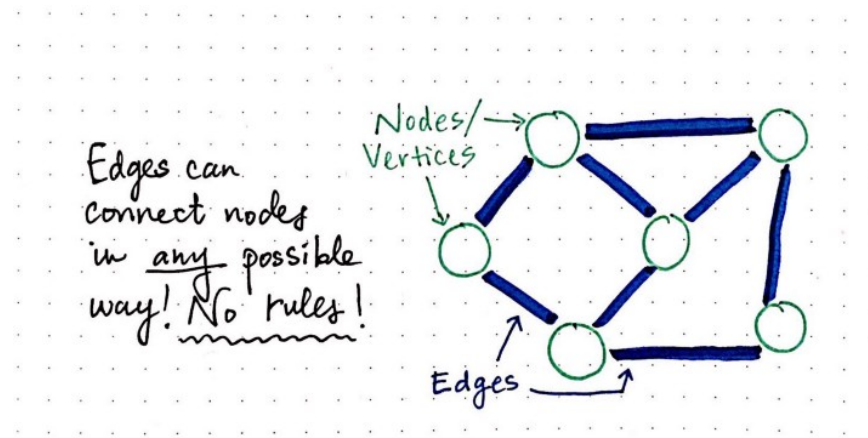 Edges can
connect nodes
in any possible
way! No rules!
Nodes/
Vertices
Edges